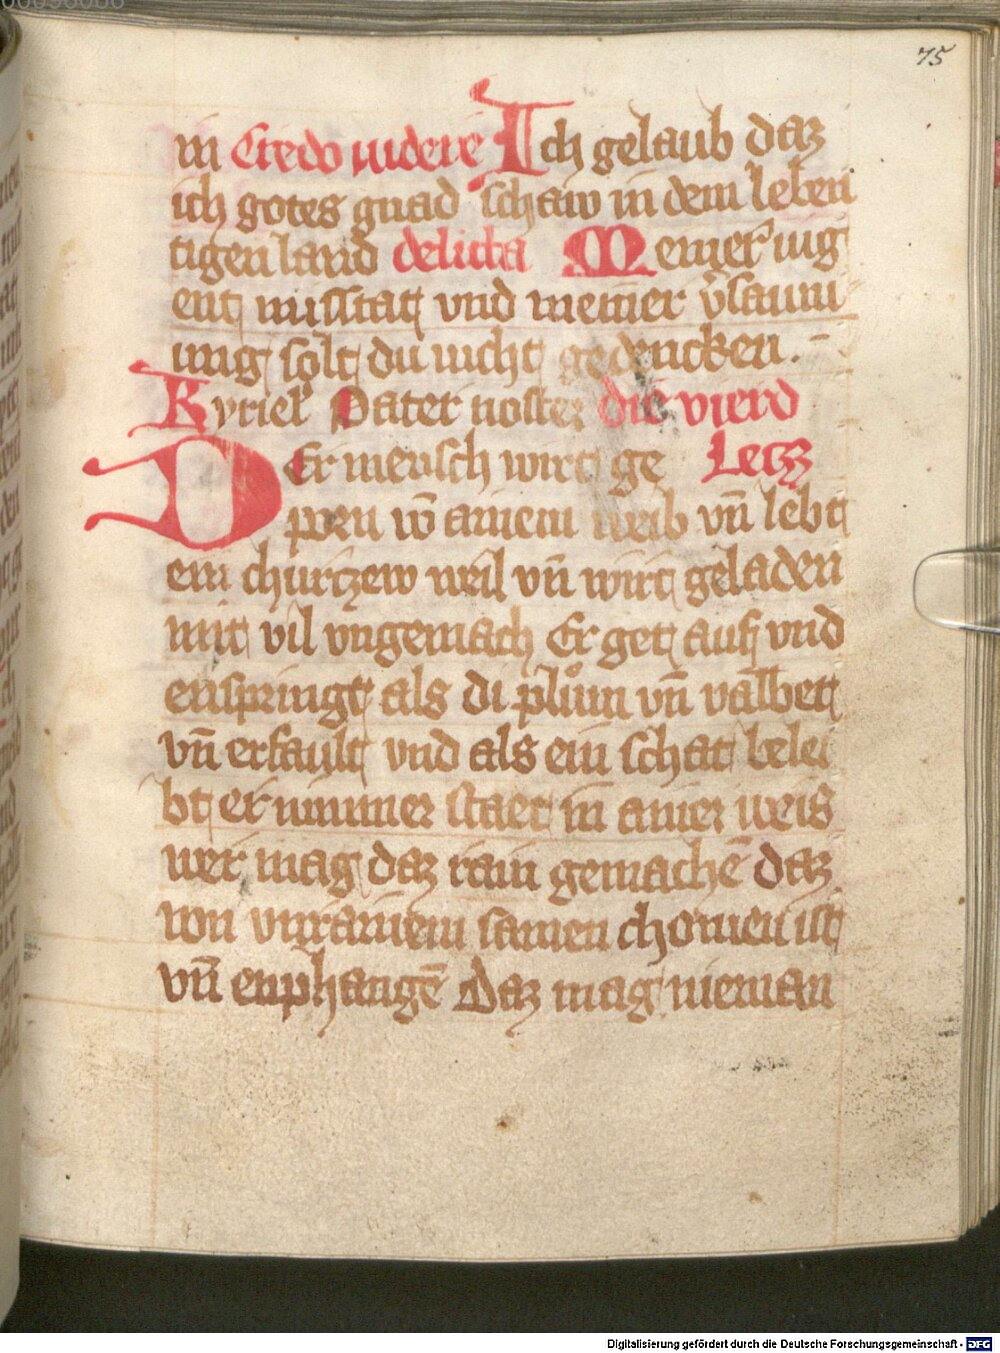 75
in Credo videre Ich gelaub daz
ich gotes gnad schaw in dem leben
tigen land delicta Meiner iug
ent missitat vnd meiner v̾saum
ung solt du nicht gedencken.
Kyriel̾ Pater noster die vierd
Der mensch wirt ge Lecz
porn vō ainem weib vn̄ lebt
ein churczew weil vn̄ wirt geladen
mit vil vngemach Er get auf vnd
enspringt als di plům vn̄ valbet
vn̄ erfault vnd als ein schat belei
bt er nimmer staet in ainer weis
wer mag daz rain gemachē daz
von vnrainem samen chomen ist
vn̄ enphangē Daz mag nieman
Digitalisierung gefördert durch die Deutsche Forschungsgemeinschaft - DFG